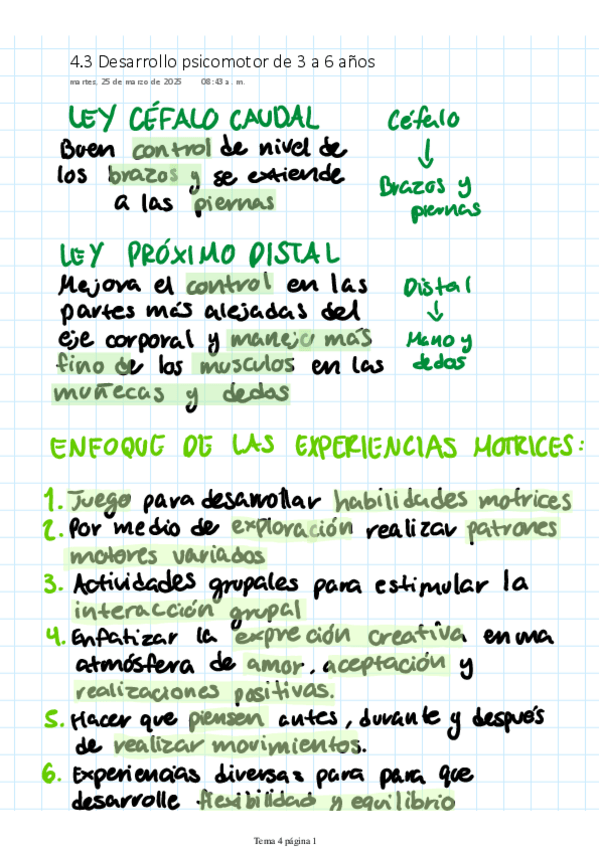 4.3 Desarrollo psicomotor de 3 a 6 años
martes, 25 de marzo de 2025 08:43 a. m.
LEY CÉFALO CAUDAL
Buen control de nivel de
los brazos y se extiende
a las piernas
Céfalo
↓
Brazos y
piernas
LEY PRÓXIMO DISTAL
Mejora el control en las
partes más alejadas del
eje corporal y manejo más
fino de los musculos en las
muñecas y dedos
Distal
↓
Mano y
dedos
ENFOQUE DE LAS EXPERIENCIAS MOTRICES:
1. Juego para desarrollar habilidades motrices
2. Por medio de exploración realizar patrones
motores variados
3. Actividades grupales para estimular la
interacción grupal
4. Enfatizar la expreción creativa en una
atmósfera de amor, aceptación y
realizaciones positivas.
5. Hacer que piensen antes, durante y después
de realizar movimientos.
6. Experiencias diversas para para que
desarrolle flexibilidad y equilibrio
Tema 4 página 1